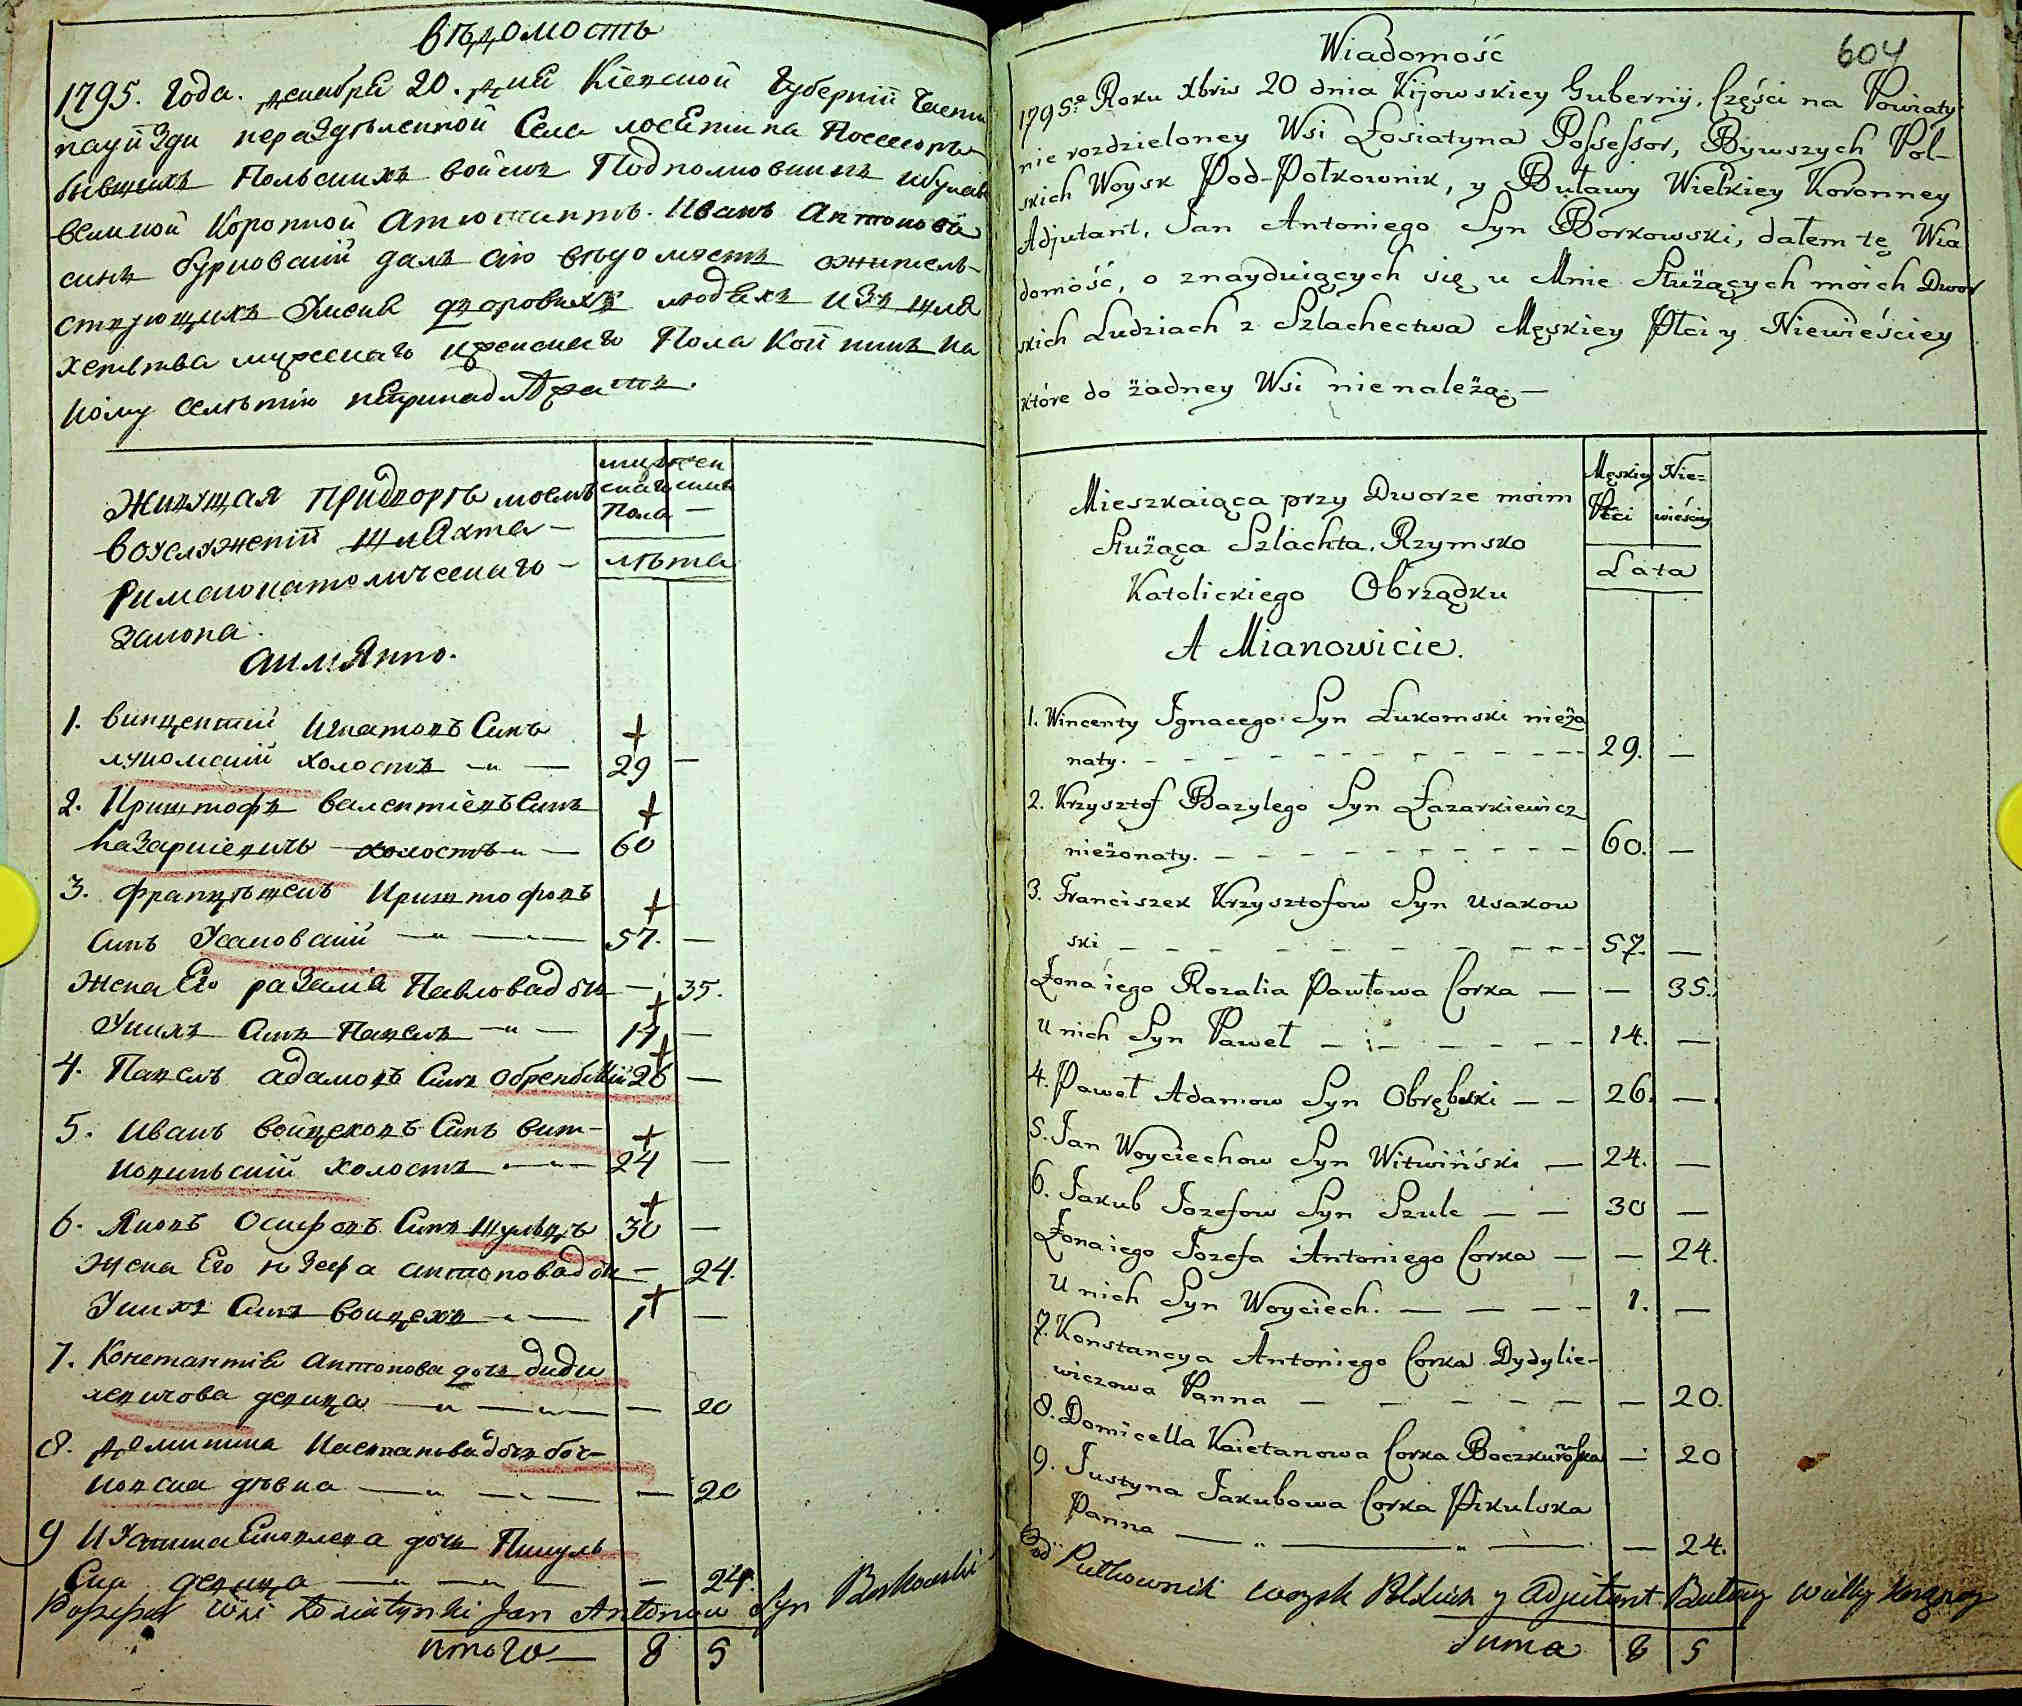 Вѣдомость
1795. Года. декабря 20. дня Кіевской Губерніи Части
науѣзди нераздѣленной Села лосѣтина Поссесоръ
бывшихъ Польскихъ войскъ Подполковникъ ибулавы
великой Коронной Атютантъ. Иванъ Антоновъ
синъ бурковскій далъ сію вѣдомость ожитель-
ствующихъ дворовихъ людѣхъ изъ шля
хетства мужескаго иженскаго Пола Кои нинѣ ни
кому селѣнію непринадлѣжатъ.
Живущая придворѣ моемъ
воуслуженіи шляхта —
Римскокатолическаго —
Закона.
Аимянно.
муж жен
скаго скаго
Пола —
лѣта
1. Винцентій Игнатовъ Синъ
лукомскій холостъ — 29 —
2. Криштофъ Валентіевъ Синъ
Лазаркіевичъ холостъ — 60
3. Францѣшекъ Криштофовъ
Синъ Усаковскій — 57. —
Жена Его разалія Павлова дочь — 35.
Унихъ Синъ Павелъ — 14 —
4. Павелъ адамовъ Синъ Обренбскій 26 —
5. Иванъ Войцеховъ Синъ Вит-
ковинскій холостъ — 24 —
6. Яковъ Осифовъ Синъ Шульцъ 30 —
Жена Его юзефа антонова дочь — 24.
Унихъ Синъ войцехъ — 1 —
7. Констанція Антонова дочь Диди
левичова девица — 20
8. Домицела Каетанова дочь боч-
ковска дѣвка — 20
9 Иустина Яковлева дочь Пикуль
Ска девица — 24.
Possessor Wsi Łosiatynki Jan Antonów Syn Borkowski
итого — 8 5
604
Wiadomość
1795º Roku Xbris 20 dnia Kijowskiey Guberniy, Części na Powiaty
nie rozdzieloney Wsi Łosiatyna Possessor, Bywszych Pol-
skich Woysk Pod-Półkownik, y Buławy Wielkiey Koronney
Adjutant, Jan Antoniego Syn Borkowski, dałem tę Wia
domość, o znayduiących się u Mnie Służących moich Dwor
skich Ludziach z Szlachectwa Męskiey Płci y Niewieściey
które do żadney Wsi nienależą. —
Mieszkaiąca przy Dworze moim
Służąca Szlachta, Rzymsko
Katolickiego Obrządku
A Mianowicie.
Męskiey Nie-
Płci wieściey
Lata
1. Wincenty Ignacego Syn Łukomski nieżo
naty. 29. —
2. Krzysztof Bazylego Syn Łazarkiewicz
nieżonaty. 60. —
3. Franciszek Krzysztofow Syn Usakow
ski 57. —
Żona iego Rozalia Pawłowa Corka — — 35.
U nich Syn Paweł 14. —
4. Paweł Adamow Syn Obrębski — — 26. —
5. Jan Woyciechow Syn Witwiński — 24. —
6. Jakub Jozefow Syn Szulc — — 30 —
Żona iego Jozefa Antoniego Corka — — 24.
U nich Syn Woyciech. — 1. —
7. Konstancya Antoniego Corka Dydylie-
wiczowa Panna — 20.
8. Domicella Kaietanowa Corka Boczkowska — 20
9. Justyna Jakubowa Corka Pikulska
Panna — 24.
Pod Pułkownik woysk Polskich y Adjutant Buławy
Suma 8 5